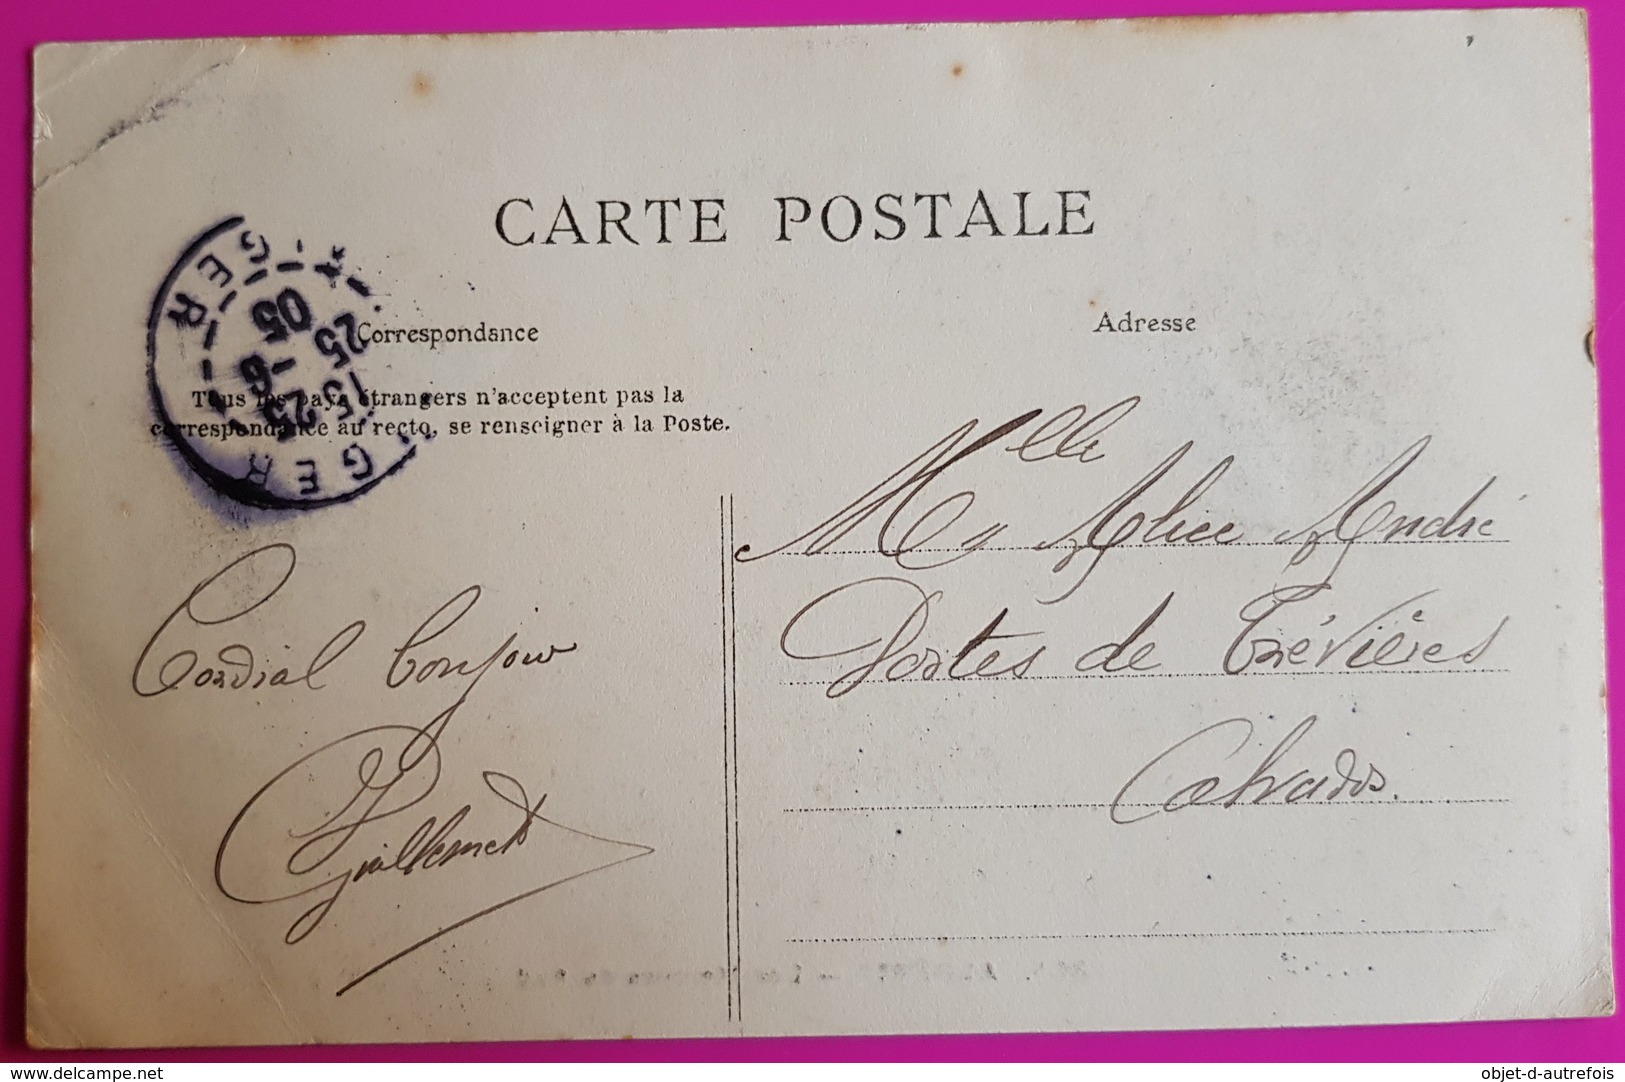 CARTE POSTALE
Correspondance
Adresse
Tous les pays étrangers n'acceptent pas la
correspondance au recto, se renseigner à la Poste.
GER
15 25
25 -6
05
GER
Cordial bonjour
Guillemet
Mlle Alice André
Postes de Trévières
Calvados.
delcampe.net
objet-d-autrefois